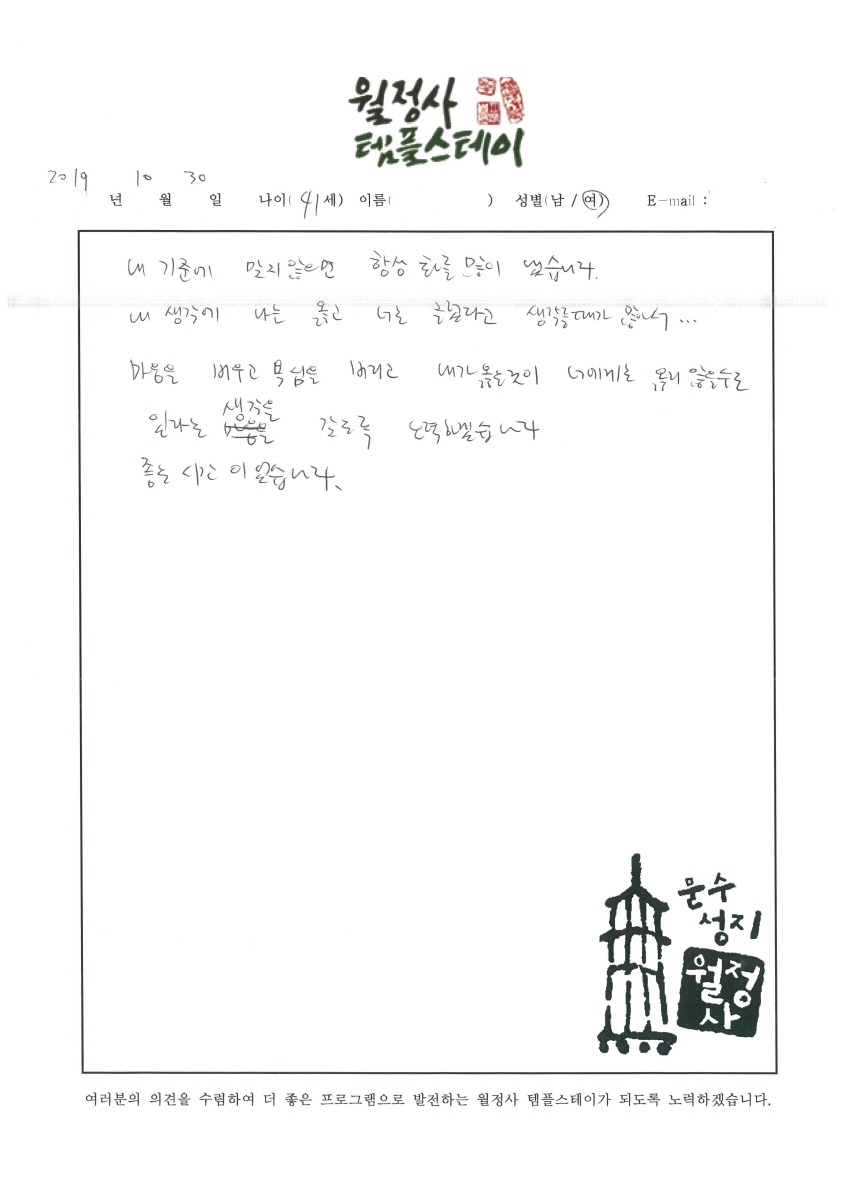 월정사
템플스테이
2019년 10월 30일 나이(41세) 이름( ) 성별(남 / 여) E-mail :
내 기준에 맞지 않으면 항상 화를 많이 냈습니다.
내 생각에 나는 옳고 너는 틀렸다고 생각을때가 많아서 ...
마음을 비우고 욕심을 버리고 내가 옳은것이 너에게는 옳지 않을수도
있다는 생각을 갖도록 노력하겠습니다
좋은 시간 이었습니다.
문수
성지
월정
사
여러분의 의견을 수렴하여 더 좋은 프로그램으로 발전하는 월정사 템플스테이가 되도록 노력하겠습니다.